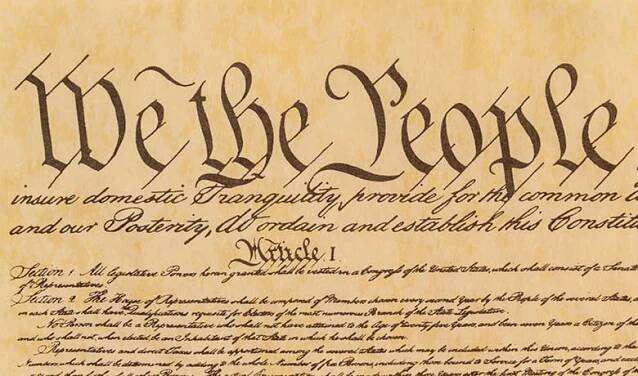 We the People
insure domestic Tranquility, provide for the common
and our Posterity, do ordain and establish this Constitu
Article. I.
Section 1. All legislative Powers herein granted shall be vested in a Congress of the United States, which shall consist of a Senate
of Representatives.
Section 2. The House of Representatives shall be composed of Members chosen every second Year by the People of the several States,
in each State shall have Qualifications requisite for Electors of the most numerous Branch of the State Legislature.
No Person shall be a Representative who shall not have attained to the Age of twenty five Years, and been seven Years a Citizen of the
and who shall not, when elected, be an Inhabitant of that State in which he shall be chosen.
Representatives and direct Taxes shall be apportioned among the several States which may be included within this Union, according to the
Numbers, which shall be determined by adding to the whole Number of free Persons, including those bound to Service for a Term of Years, and